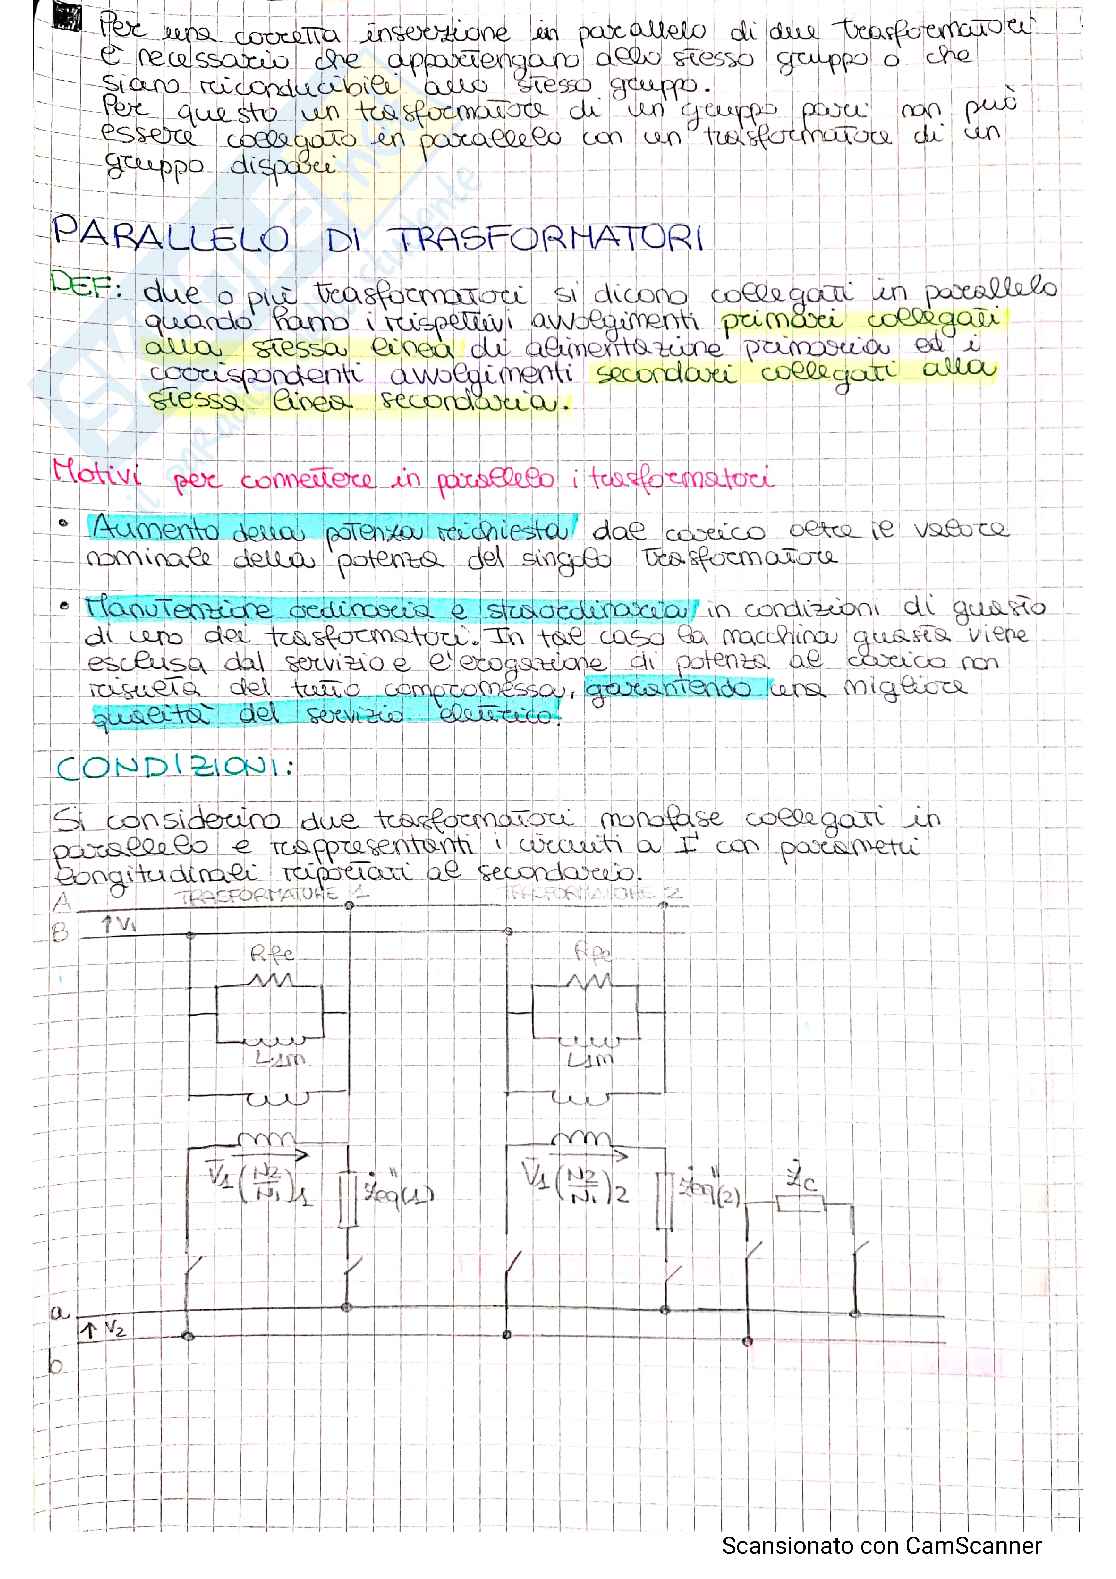 Per una corretta inserzione in parallelo di due trasformatori
è necessario che appartengano allo stesso gruppo o che
siano riconducibili allo stesso gruppo.
Per questo un trasformatore di un gruppo pari non può
essere collegato in parallelo con un trasformatore di un
gruppo dispari.
PARALLELO DI TRASFORMATORI
DEF: due o più trasformatori si dicono collegati in parallelo
quando hanno i rispettivi avvolgimenti primari collegati
alla stessa linea di alimentazione primaria ed i
corrispondenti avvolgimenti secondari collegati alla
stessa linea secondaria.
Motivi per connettere in parallelo i trasformatori
• Aumento della potenza richiesta dal carico oltre il valore
nominale della potenza del singolo trasformatore
• Manutenzione ordinaria e straordinaria in condizioni di guasto
di uno dei trasformatori. In tal caso la macchina guasta viene
esclusa dal servizio e l'erogazione di potenza al carico non
risulta del tutto compromessa, garantendo una migliore
qualità del servizio elettrico.
CONDIZIONI:
Si considerino due trasformatori monofase collegati in
parallelo e rappresentanti i circuiti a Γ con parametri
longitudinali riportati al secondario.
A TRASFORMATORE 1 TRASFORMATORE 2
B ↑V₁
Rfe Rfe
L1m L1m
V̄1(N2/N1)1 Żeq(1)'' V̄1(N2/N1)2 Żeq(2)'' Żc
a
↑V2
b
Scansionato con CamScanner